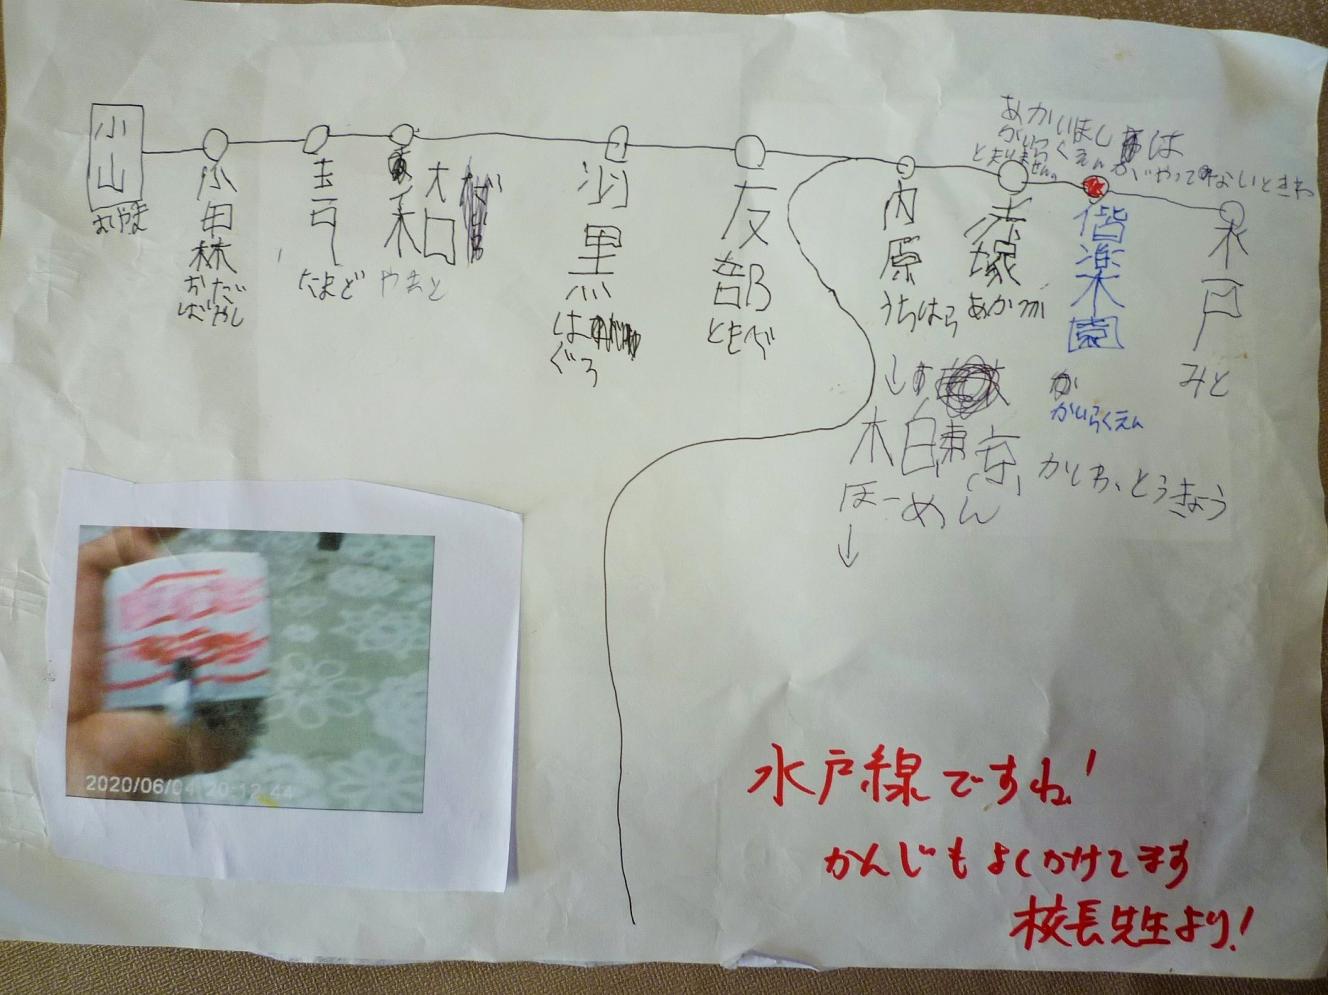 あかいほしは
かいらくえんがやってないときわ
とまりません。
小山
おやま
小田林
おだばやし
玉戸
たまど
大和
やまと
羽黒
はぐろ
友部
ともべ
内原
うちはら
赤塚
あかつか
偕楽園
かいらくえん
水戸
みと
柏東京
かしわ、とうきょう
ほーめん
↓
2020/06/04 20:12:44
水戸線ですね!
かんじもよくかけてます
校長先生より!